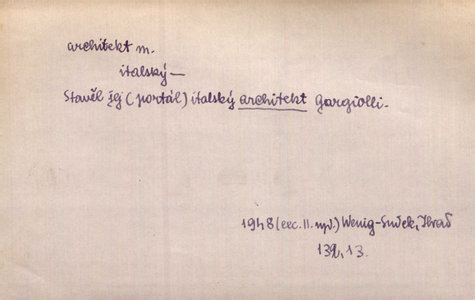 architekt m.
italský—
Stavěl jej (portál) italský architekt Gargiolli.
1948 (exc. II. vyd.) Wenig-Sudek, Hrad
139, 13.